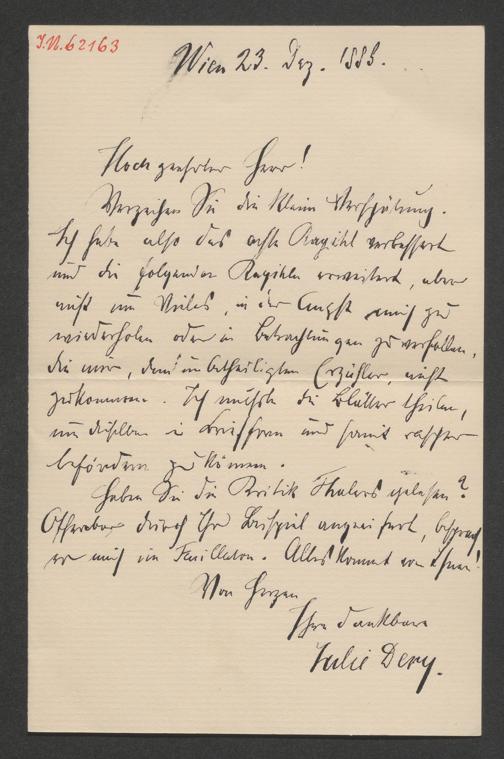 I.N. 62163
Wien 23. Dez. 1888.
Hochgeehrter Herr!
Verzeihen Sie die kleine Verspätung.
Ich habe also das achte Kapitel verbessert
und die folgenden Kapitel erweitert, aber
nicht um Vieles, in der Angst mich zu
wiederholen oder in Betrachtungen zu verfallen,
die mir, dem unbetheiligten Erzähler, nicht
zukommen. Ich mußte die Blätter theilen,
um dieselben in Briefform und somit rascher
befördern zu können.
Haben Sie die Kritik Thalers gelesen?
Offenbar durch Ihr Beispiel angeeifert, besprach
er mich im Feuilleton. Alles kommt von Ihnen!
Von Herzen
Ihre dankbare
Julie Dery.